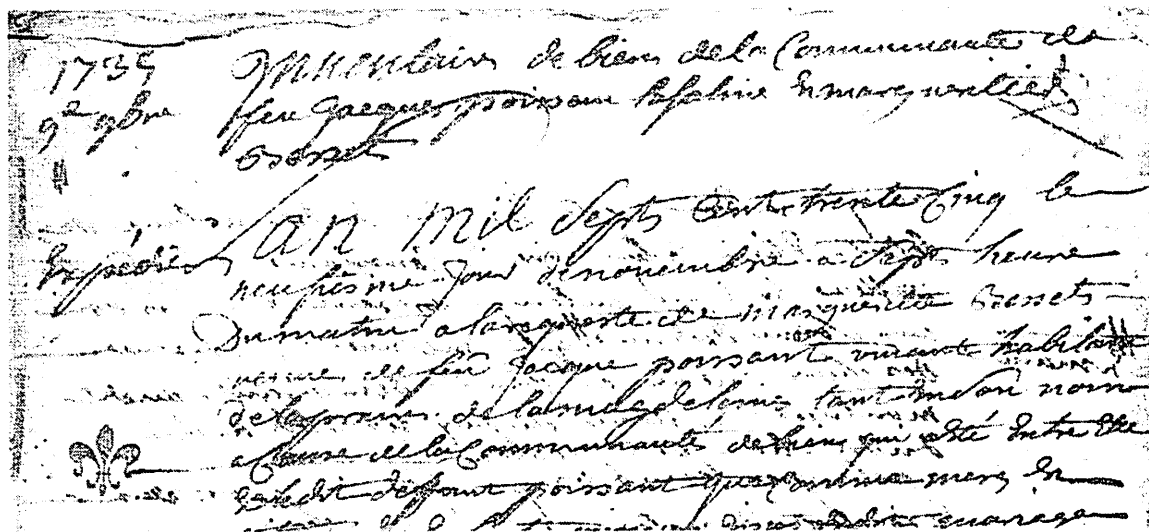 1735
9e 9bre
Inventaire de biens de la Communauté de
feu Jacques poissant lasaline Et margueritte
Bessets
Expédiés
L'an Mil Septs Cents trente Cinq le
neufiesme Jour de novembre a Septs heure
Du matin a la requeste de marguerite Bessets
veuve de feu Jacque poissant vivant habitant
de la prairie de la magdelaine tant En Son nom
a Cause de la Communauté de biens qui a Eté Entre Elle
Et ledit deffunt poissant que Comme mere
mariage